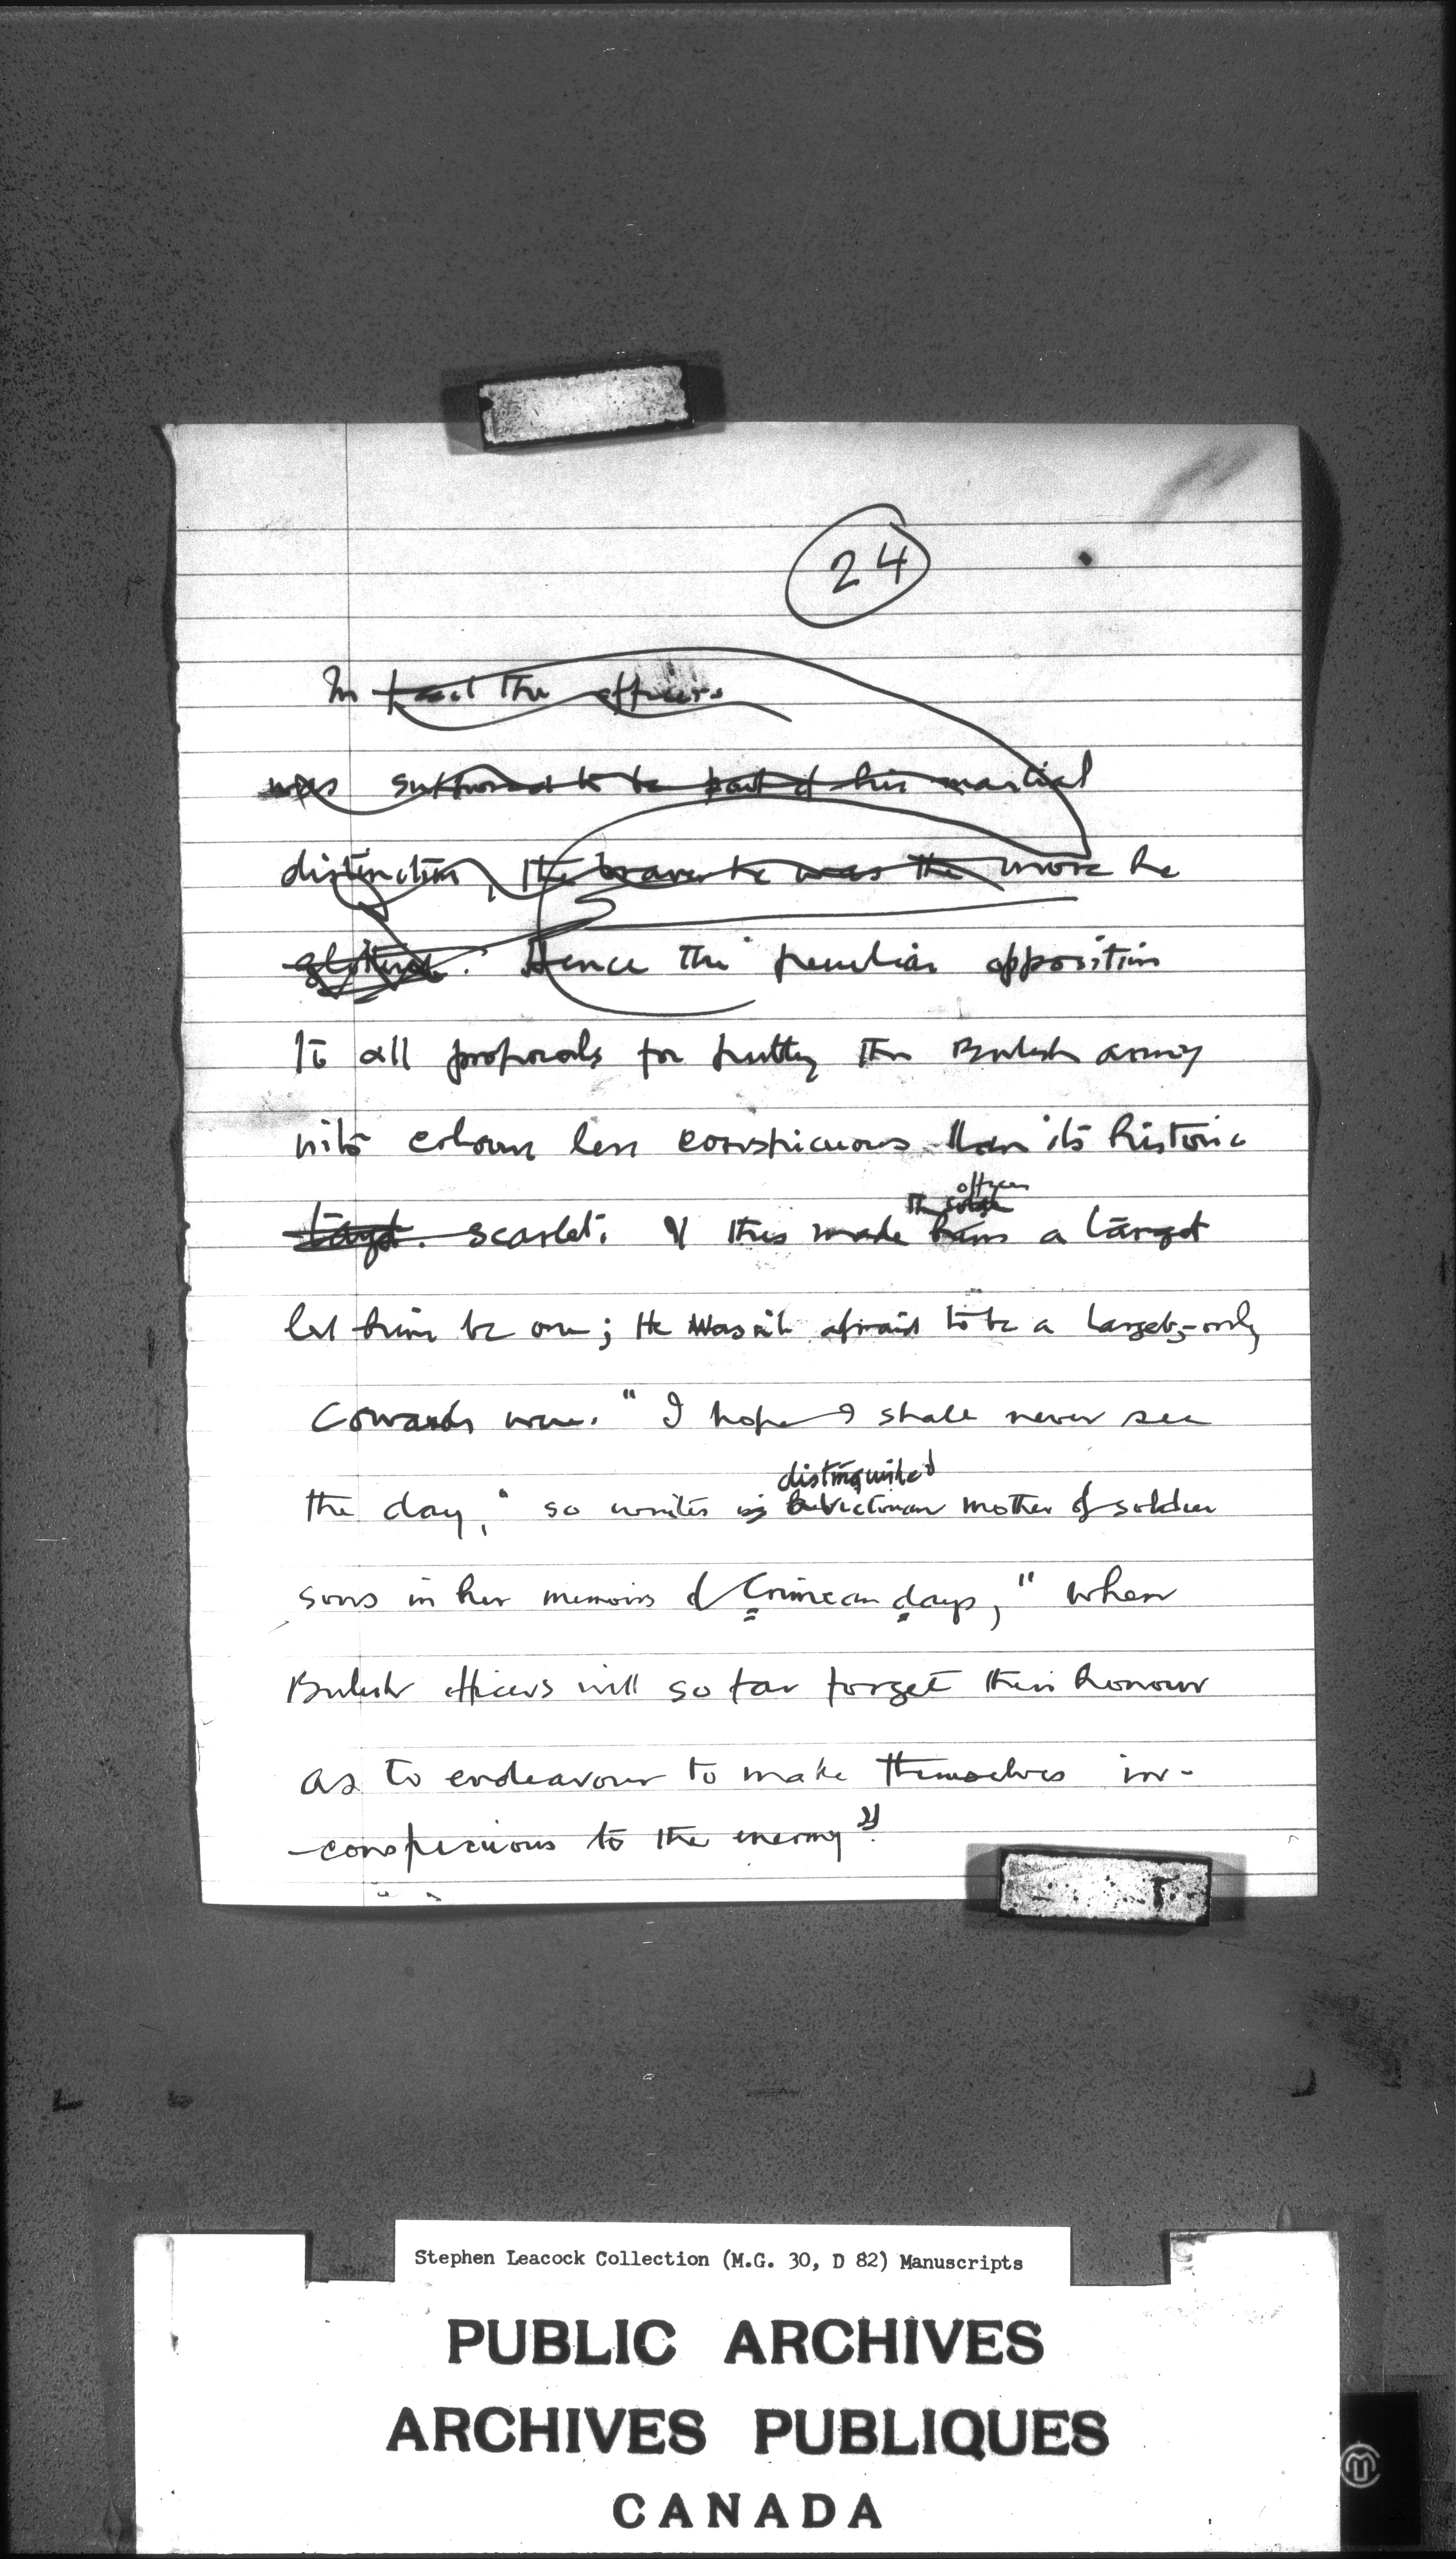 24
In fact the officers
was supposed to be part of his martial
distinction, the braver he was the more he
glittered. Hence the peculiar opposition
to all proposals for putting the British army
into colours less conspicuous than its historic
target. scarlet. If this made him a target
the officer
let him be one; He wasn't afraid to be a target,-only
Cowards were. "I hope I shall never see
the day," so writes a Victorian mother of soldier
distinguished
sons in her memoirs of Crimean days, "when
British officers will so far forget their honour
as to endeavour to make themselves in-
-conspicuous to the enemy".
Stephen Leacock Collection (M.G. 30, D 82) Manuscripts
PUBLIC ARCHIVES
ARCHIVES PUBLIQUES
CANADA